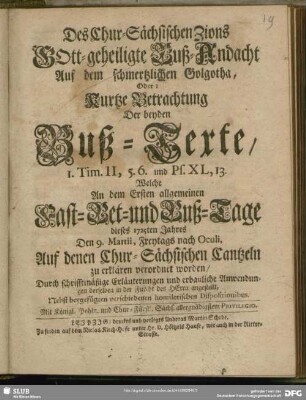 19
Des Chur-Sächsischen Zions
GOtt-geheiligte Buß-Andacht
Auf dem schmertzlichen Golgotha,
Oder:
Kurtze Betrachtung
Der beyden
Buß-Texte/
1. Tim. II, 5. 6. und Ps. XL, 13.
Welche
An dem Ersten allgemeinen
Fast-Bet-und Buß-Tage
dieses Jahres
Den 9. Martii, Freytags nach Oculi,
Auf denen Chur-Sächsischen Cantzeln
zu erklären verordnet worden/
Durch schrifftmäßige Erläuterungen und erbauliche Anwendun-
gen derselben in der Furcht des HErrn angestellt,
Nebst beygefügten verschiedenen homiletischen Dispositionibus.
Mit Königl. Pohln. und Chur-Fürstl. Sächs. allergnädigsten PRIVILEGIO.
LEIPZIG, druckts und verlegts
Zu finden auf dem Kirch-Hofe unter Hause, wie auch in der Ritter-
Strasse.
SLUB
Wir führen Wissen.